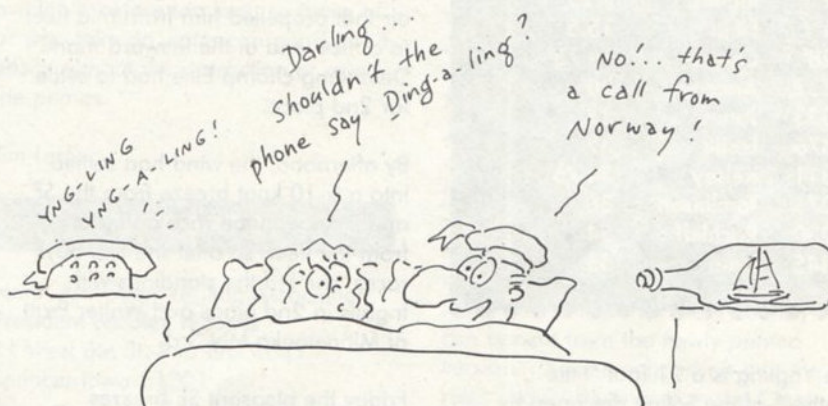 YNG-LING
YNG-A-LING!
Darling...
Shouldn't the
phone say Ding-a-ling?
No!... that's
a call from
Norway!